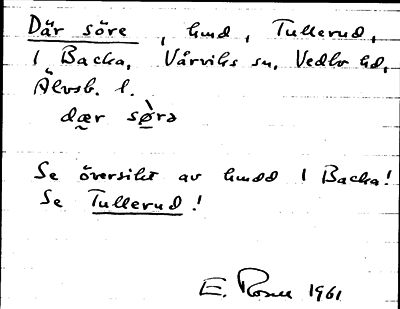 Där söre, hmd, Tullerud,
1 Backa, Vårviks sn, Vedbo hd,
Älvsb. l.
dær sø̀rə
Se översikt av hmdd 1 Backa!
Se Tullerud!
E. Rosell 1961